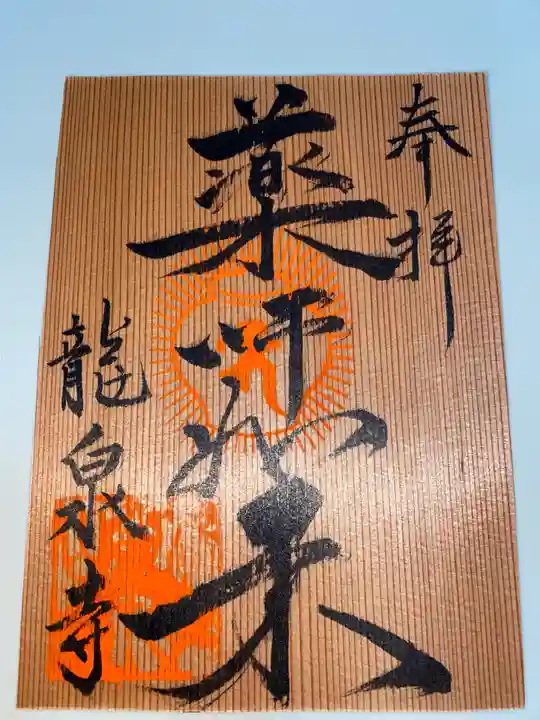 奉拝
薬师如来
龍泉寺